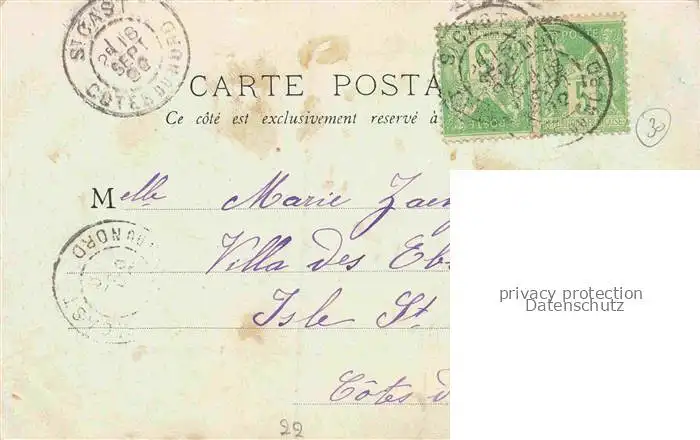 ST CAST
18
SEPT
00
COTES DU NORD
CARTE POSTA
Ce côté est exclusivement reservé à
Melle Marie
Villa des
Isle St
Côtes d
ST CAST
DU NORD
ST CAST
POSTE
5
30
22
privacy protection
Datenschutz